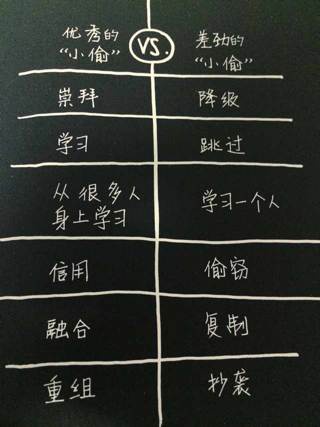 优秀的
“小偷”
VS.
差劲的
“小偷”
崇拜
降级
学习
跳过
从很多人
身上学习
学习一个人
信用
偷窃
融合
复制
重组
抄袭